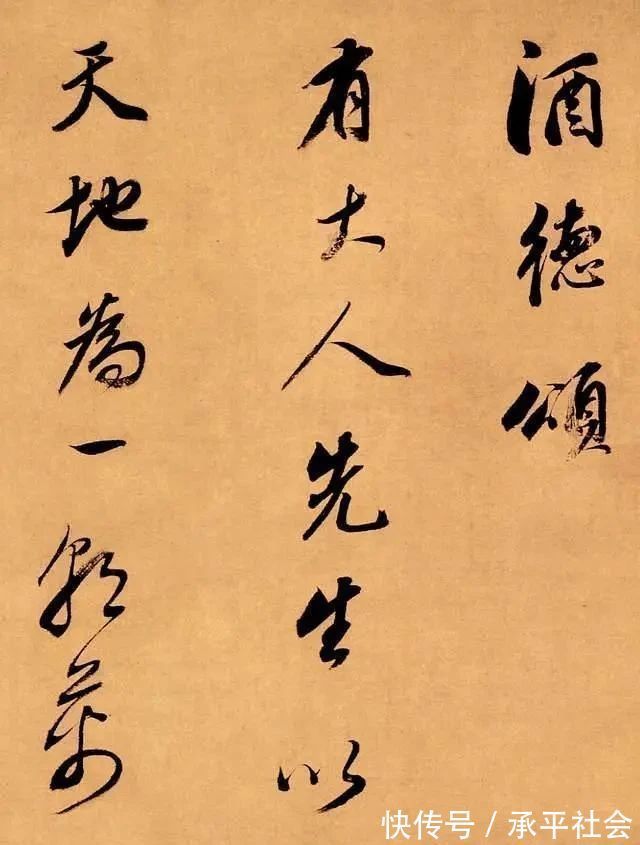 酒德頌
有大人先生以
天地為一朝萬
快传号/承平社会